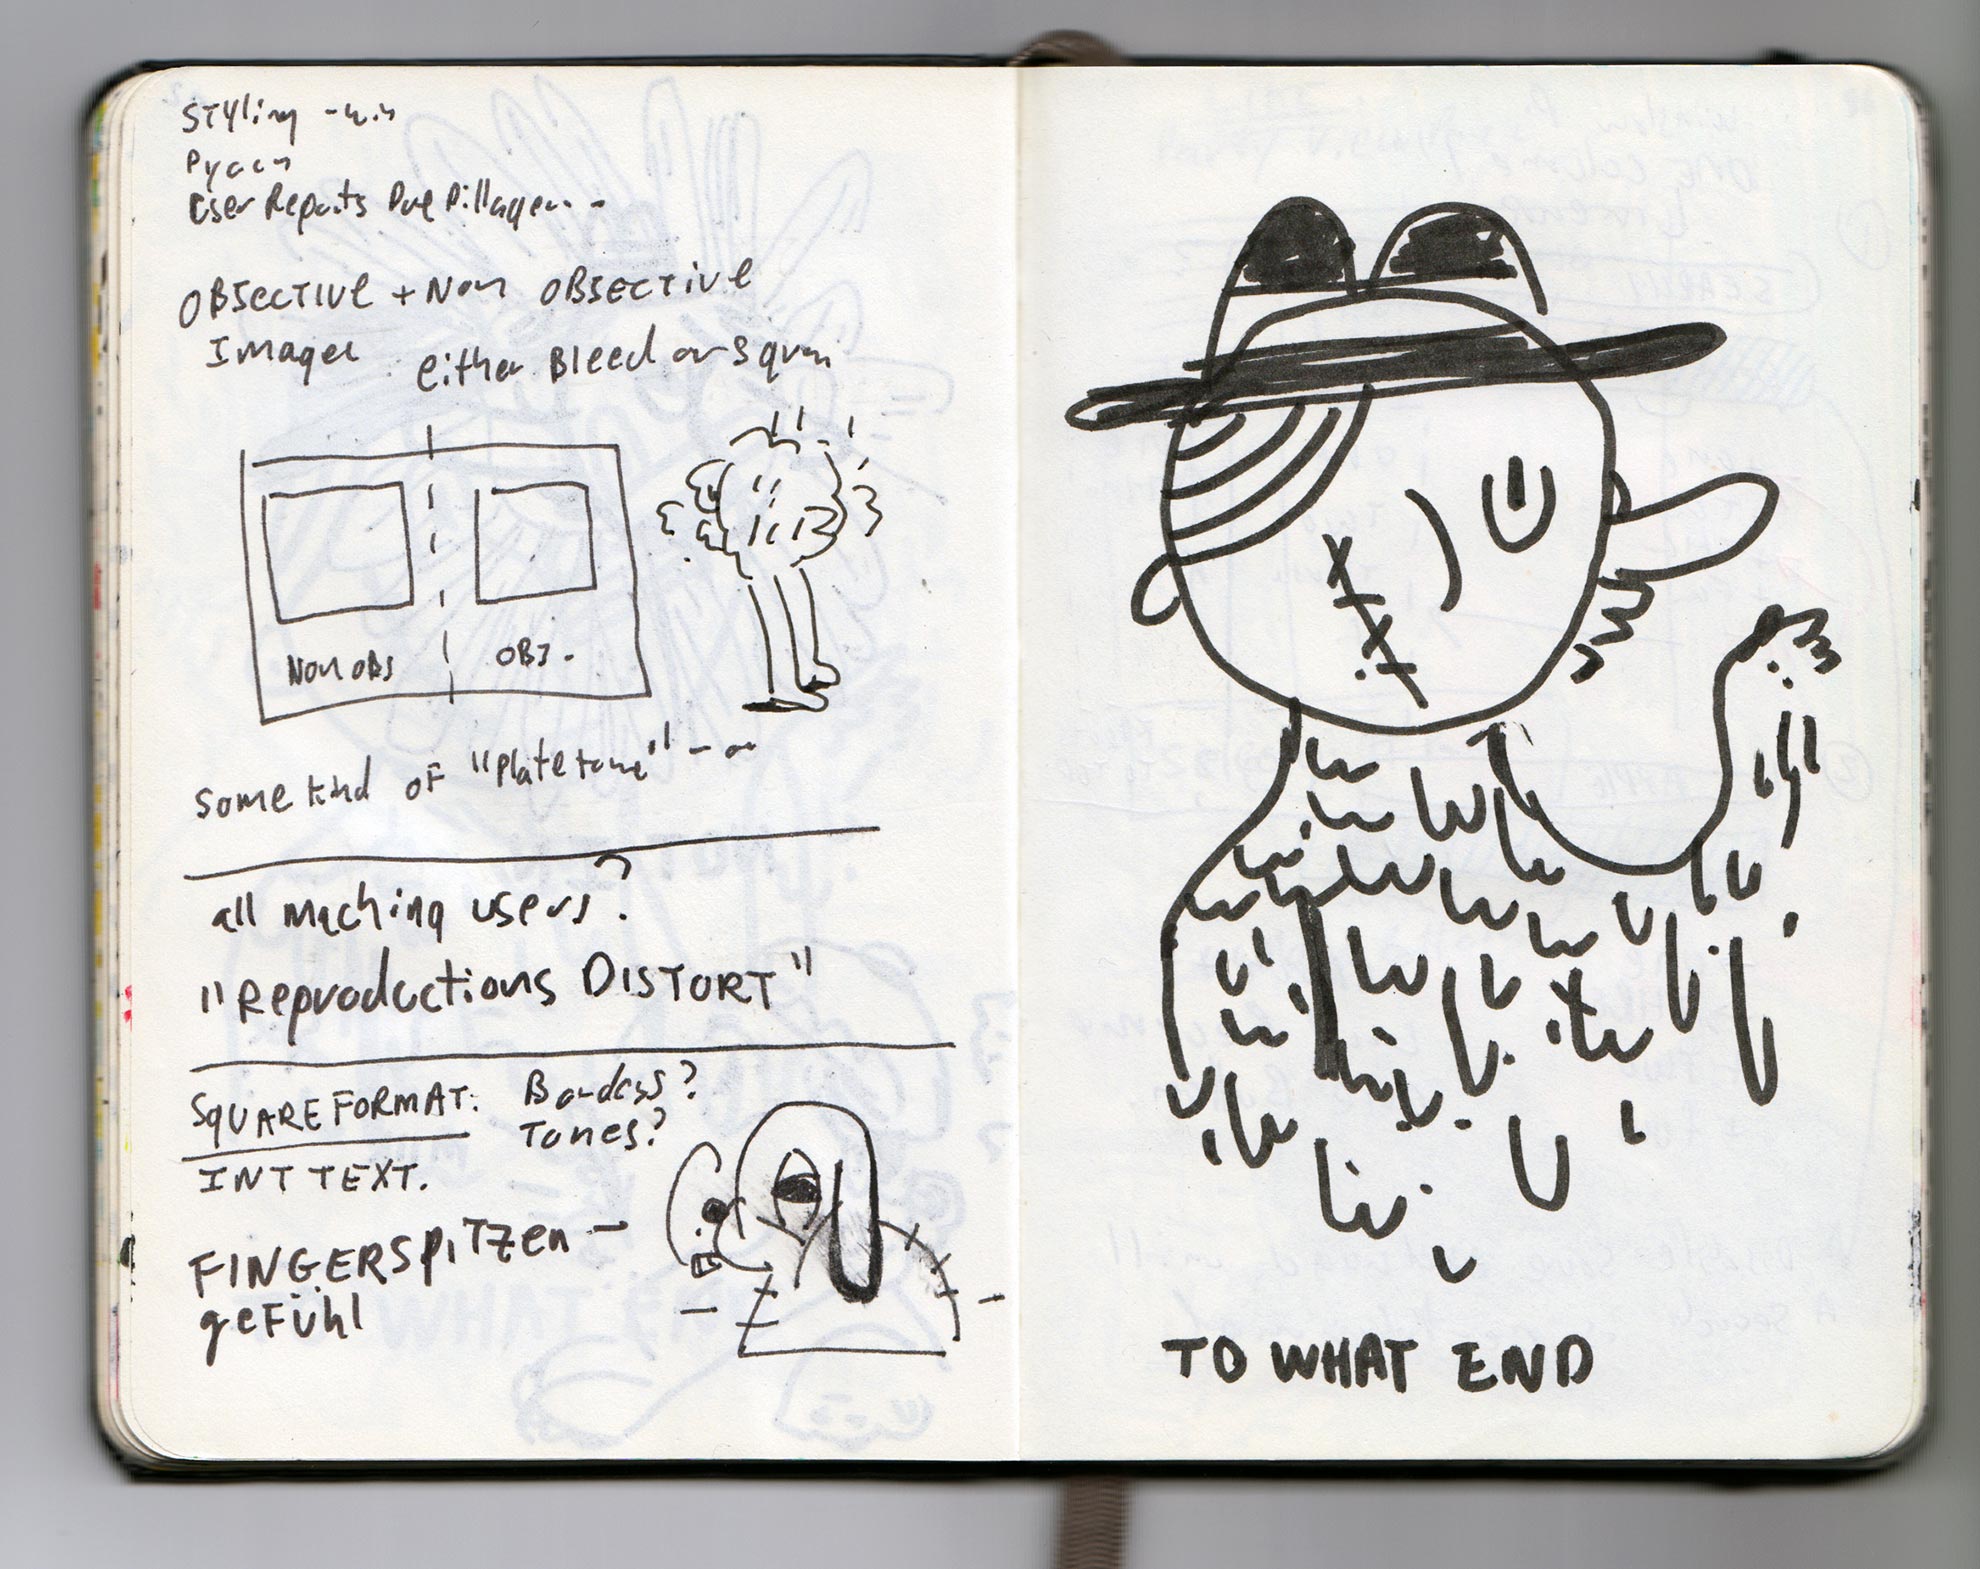 STYling
User Reports
OBJECTIVE + Non OBJECTIVE
Images either Bleed or square
Non OBJ OBJ.
some kind of "plate tone" - or
all maching users?
"Reproductions DISTORT"
SQUARE FORMAT: Borders?
Tones?
INT TEXT.
FINGERSPITZEN -
GEFÜHL
TO WHAT END